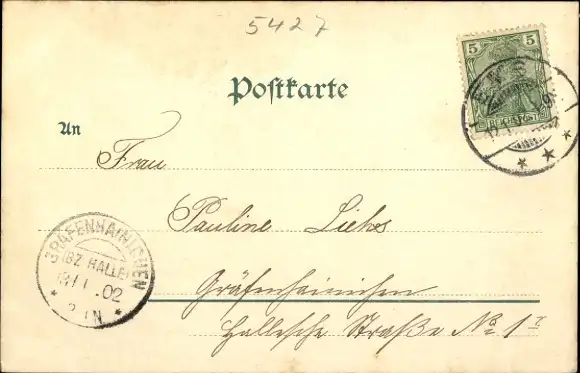 5427
5 5
REICHSPOST
Postkarte
An
Frau
Pauline Liehos
GRÄFENHAINICHEN
(BZ HALLE)
02
* *
Gräfenhainichen
Hallesche Straße No 1